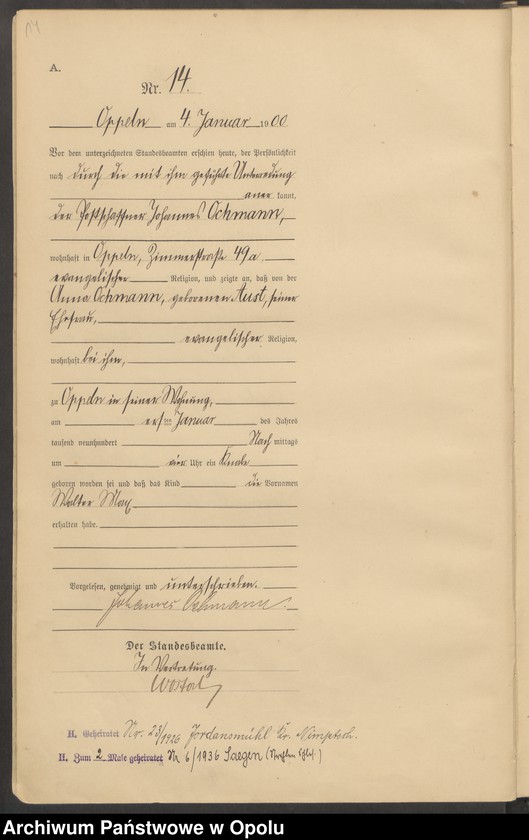 14
A.
Nr. 14.
Oppeln am 4. Januar 1900
Vor dem unterzeichneten Standesbeamten erschien heute, der Persönlichkeit
nach durch die mit ihm geführte Unterredung
aner kannt,
der Postschaffner Johannes Ochmann,
wohnhaft in Oppeln, Zimmerstraße 49a
evangelischer Religion, und zeigte an, daß von der
Anna Ochmann, geborenen Aust, seiner
Ehefrau,
evangelischer Religion,
wohnhaft bei ihm,
zu Oppeln in seiner Wohnung,
am ersten Januar des Jahres
tausend neunhundert Nach mittags
um vier Uhr ein Knabe
geboren worden sei und daß das Kind die Vornamen
Walter Max
erhalten habe.
Vorgelesen, genehmigt und unterschrieben.
Johannes Ochmann.
Der Standesbeamte.
In Vertretung.
H. Geheiratet Nr. 23/1926 Jordansmühl Kr. Nimptsch.
H. Zum 2 Male geheiratet Nr 6/1936 Saegen
Archiwum Państwowe w Opolu